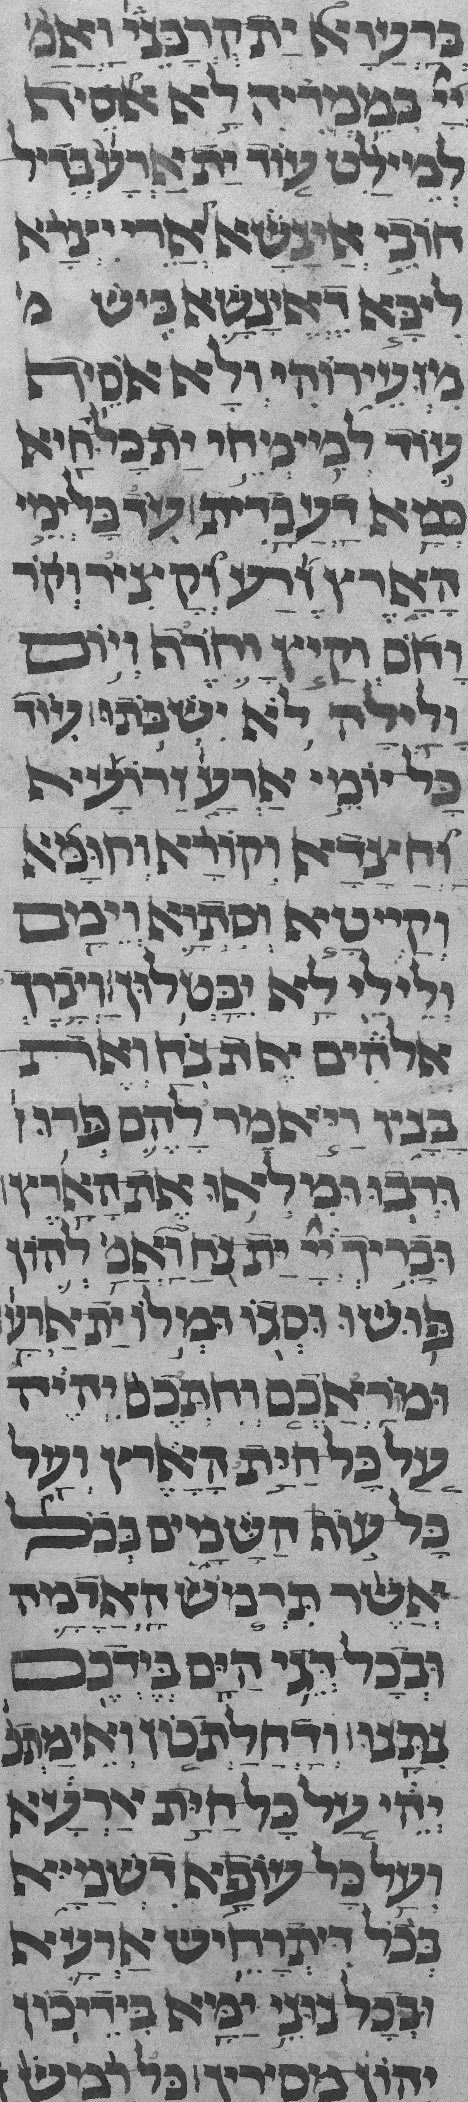 ברעוא ית קרבניה ואמ'
יי במימריה לא אוסיף
למילט עוד ית ארעא בדיל
חובי אינשא ארי יצרא
ליבא דאינשא ביש מ'
מזעירוהי ולא אוסיף
עוד לממחי ית כל חייא
כמא דעבדית עד כל ימי
הארץ זרע וקציר וקר
וחם וקיץ וחרף ויום
ולילה לא ישבתו עוד
כל יומי ארעא זרועא
וחצדא וקורא וחומא
וקייטא וסתוא וימם
ולילי לא יבטלון ויברך
אלהים את נח ואת
בניו ויאמר להם פרו
ורבו ומלאו את הארץ
ובריך יי ית נח ואמ' להון
פושו וסגו ומלו ית ארעא
ומוראכם וחתכם יהיה
על כל חית הארץ ועל
כל עוף השמים בכל
אשר תרמש האדמה
ובכל דגי הים בידכם
נתנו ודחלתכון ואימתכ
יהי על כל חית ארעא
ועל כל עופא דשמייא
בכל דיתרחיש ארעא
ובכל נוני ימא בידיכון
יהון מסירין כל רמש